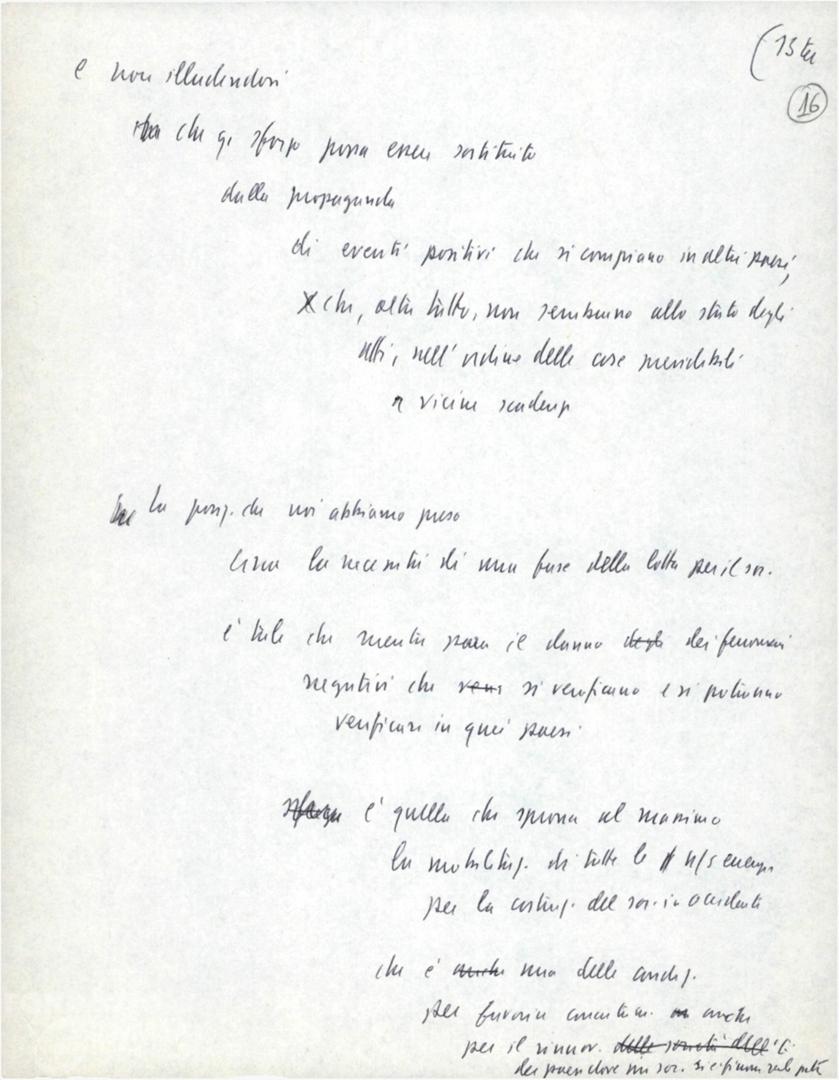 (15 ter
16
e non illudendosi
che q. sforzo possa essere sostituito
dalla propaganda
di eventi positivi che si compiano in altri paesi,
che, oltre tutto, non sembrano allo stato degli
atti, nell'ordine delle cose prevedibili
a vicine scadenze
la posiz. che noi abbiamo preso
circa la necessità di una fase della lotta per il soc.
è tale che mentre para il danno degli dei fenomeni
negativi che si verificano e si potranno
verificare in quei paesi
sforzo è quella che sprona al massimo
la mobilitaz. di tutte le n/s energie
per la costruz. del soc. in occidente
che è anche una delle condiz.
per favorire anche
per il rinnov. delle società dell'
dei paesi dove un soc. si è